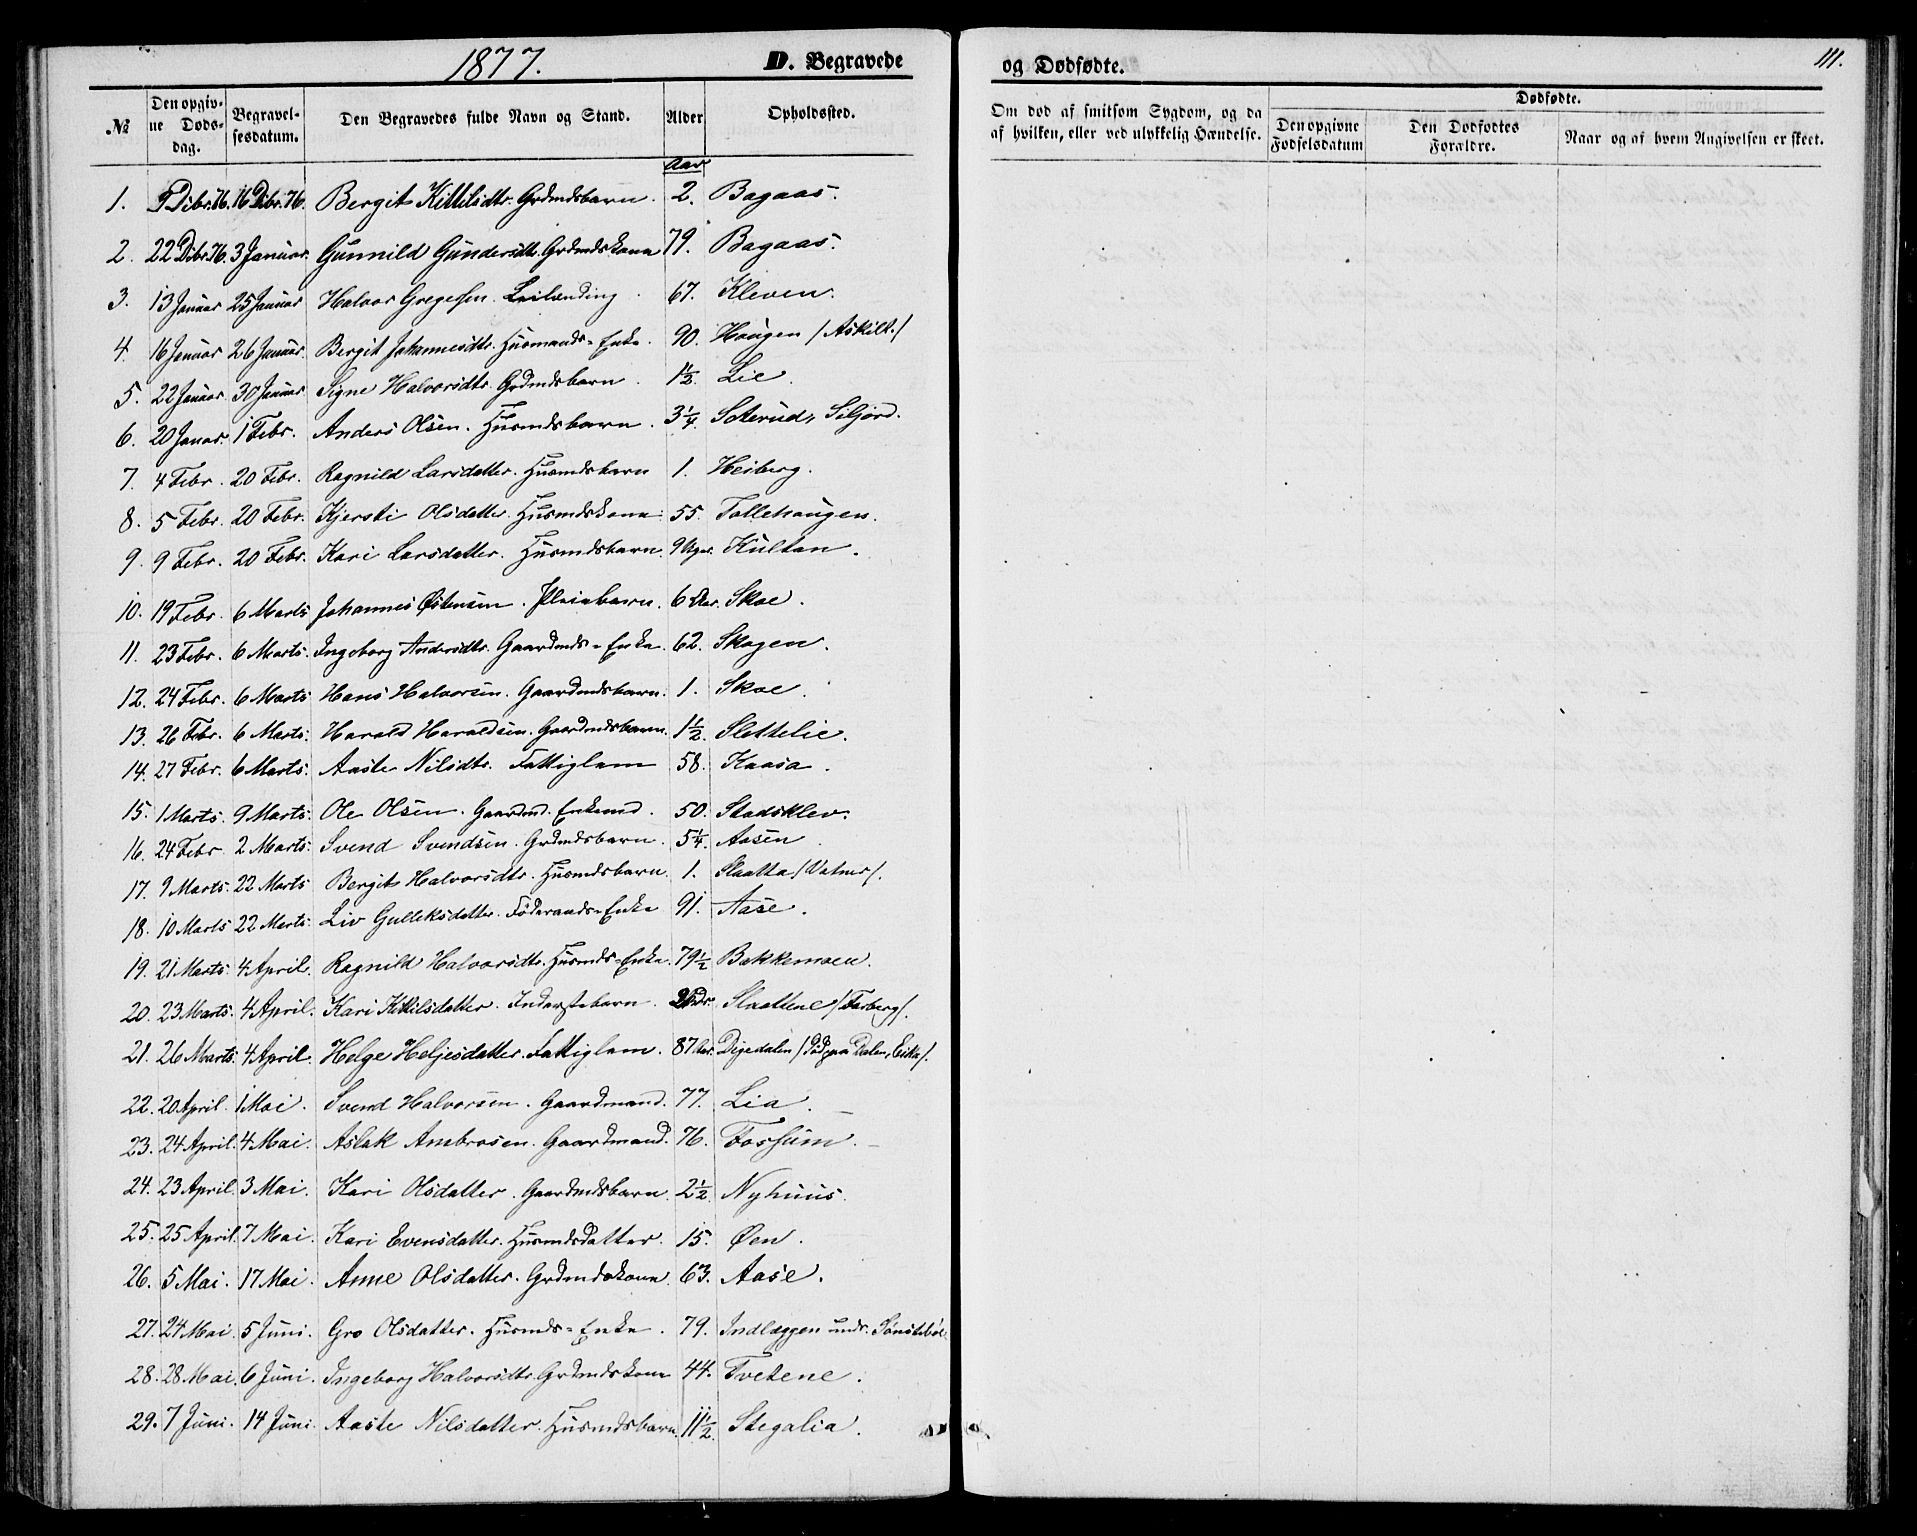 1877.
D. Begravede
og Dødfødte.
111.
№
Den opgiv-
ne Døds-
dag.
Begravel-
sesdatum.
Den Begravedes fulde Navn og Stand.
Alder
Opholdssted.
Om død af smitsom Sygdom, og da
af hvilken, eller ved ulykkelig Hændelse.
Dødfødte.
Den opgivne
Fødselsdatum
Den Dødfødtes
Forældre.
Naar og af hvem Angivelsen er skeet.
Aar
1. 9 Dibr. 76. 16 Dibr. 76. Bergit Kittilsdtr. Grdmdsbarn. 2. Bagaas.
2. 22 Dibr. 76. 3 Januar. Gunnild Gundersdtr. Grdmdskone 79. Bagaas.
3. 13 Januar 25 Januar Halvor Gregersen. Leilænding. 67. Kleven.
4. 16 Januar 26 Januar. Bergit Johannesdtr. Husmands-Enke. 90. Haugen /Askilt./
5. 22 Januar 30 Januar Signe Halvorsdtr. Grdmdsbarn. 1½. Lie.
6. 20 Januar. 1 Febr. Anders Olsen. Husmdsbarn. 3¼. Soterud, Siljord.
7. 4 Febr. 20 Febr. Ragnild Larsdatter. Husmdsbarn 1. Heiberg.
8. 5 Febr. 20 Febr. Kjersti Olsdatter. Husmdskone 55. Tollehaugen.
9. 9 Febr. 20 Febr. Kari Larsdatter. Husmdsbarn. 9 Uger. Kultan.
10. 19 Febr. 6 Marts Johannes Østensen. Pleiebarn. 6 Aar. Skoe.
11. 23 Febr. 6 Marts. Ingeborg Andersdtr. Gaardmds-Enke. 62. Skogen.
12. 24 Febr. 6 Marts Hans Halvorsen. Gaardmdsbarn. 1. Skoe.
13. 26 Febr. 6 Marts. Harald Haraldsen. Gaardmdsbarn. 1½. Slettelie.
14. 27 Febr. 6 Marts. Aaste Nilsdtr. Fattiglem 58. Kaasa.
15. 1 Marts. 9 Marts. Ole Olsen. Gaardmd. Enkemd. 50. Stadsklev.
16. 24 Febr 2 Marts. Svend Svendsen. Grdmdsbarn. 5¼. Aasen
17. 9 Marts. 22 Marts Bergit Halvorsdtr. Husmdsbarn. 1. Slaatta /Vatnar/.
18. 10 Marts 22 Marts. Liv Gulleksdatter. Föderaads-Enke 91. Aase.
19. 21 Marts. 4 April. Ragnild Halvorsdtr. Husmds-Enke. 79½ Bakkemoen.
20. 23 Marts. 4 April. Kari Kittilsdatter. Inderstebarn. Slaattene /Farberg/.
21. 26 Marts. 4 April. Helge Heljesdatter. Fattiglem. 87 Aar. Digedalen /Død paa Dalen, Eika/.
22. 20 April. 1 Mai. Svend Halvorsen. Gaardmand. 77. Lia.
23. 24 April. 4 Mai. Aslak Ambrosen. Gaardmand. 76. Fossum.
24. 23 April. 3 Mai. Kari Olsdatter. Gaardmdsbarn. 2½. Nyhuus.
25. 25 April. 7 Mai. Kari Evensdatter. Husmdsdatter. 15. Øen.
26. 5 Mai. 17 Mai. Anne Olsdatter. Grdmdskone. 63. Aase.
27. 24 Mai. 5 Juni. Gro Olsdatter. Husmds-Enke. 79. Indlæggen undr. Sønstebö
28. 28 Mai. 6 Juni. Ingeborg Halvorsdtr. Grdmdskone 44. Tvetene.
29. 7 Juni. 14 Juni. Aaste Nilsdatter. Husmdsbarn. 11½. Stegalia.